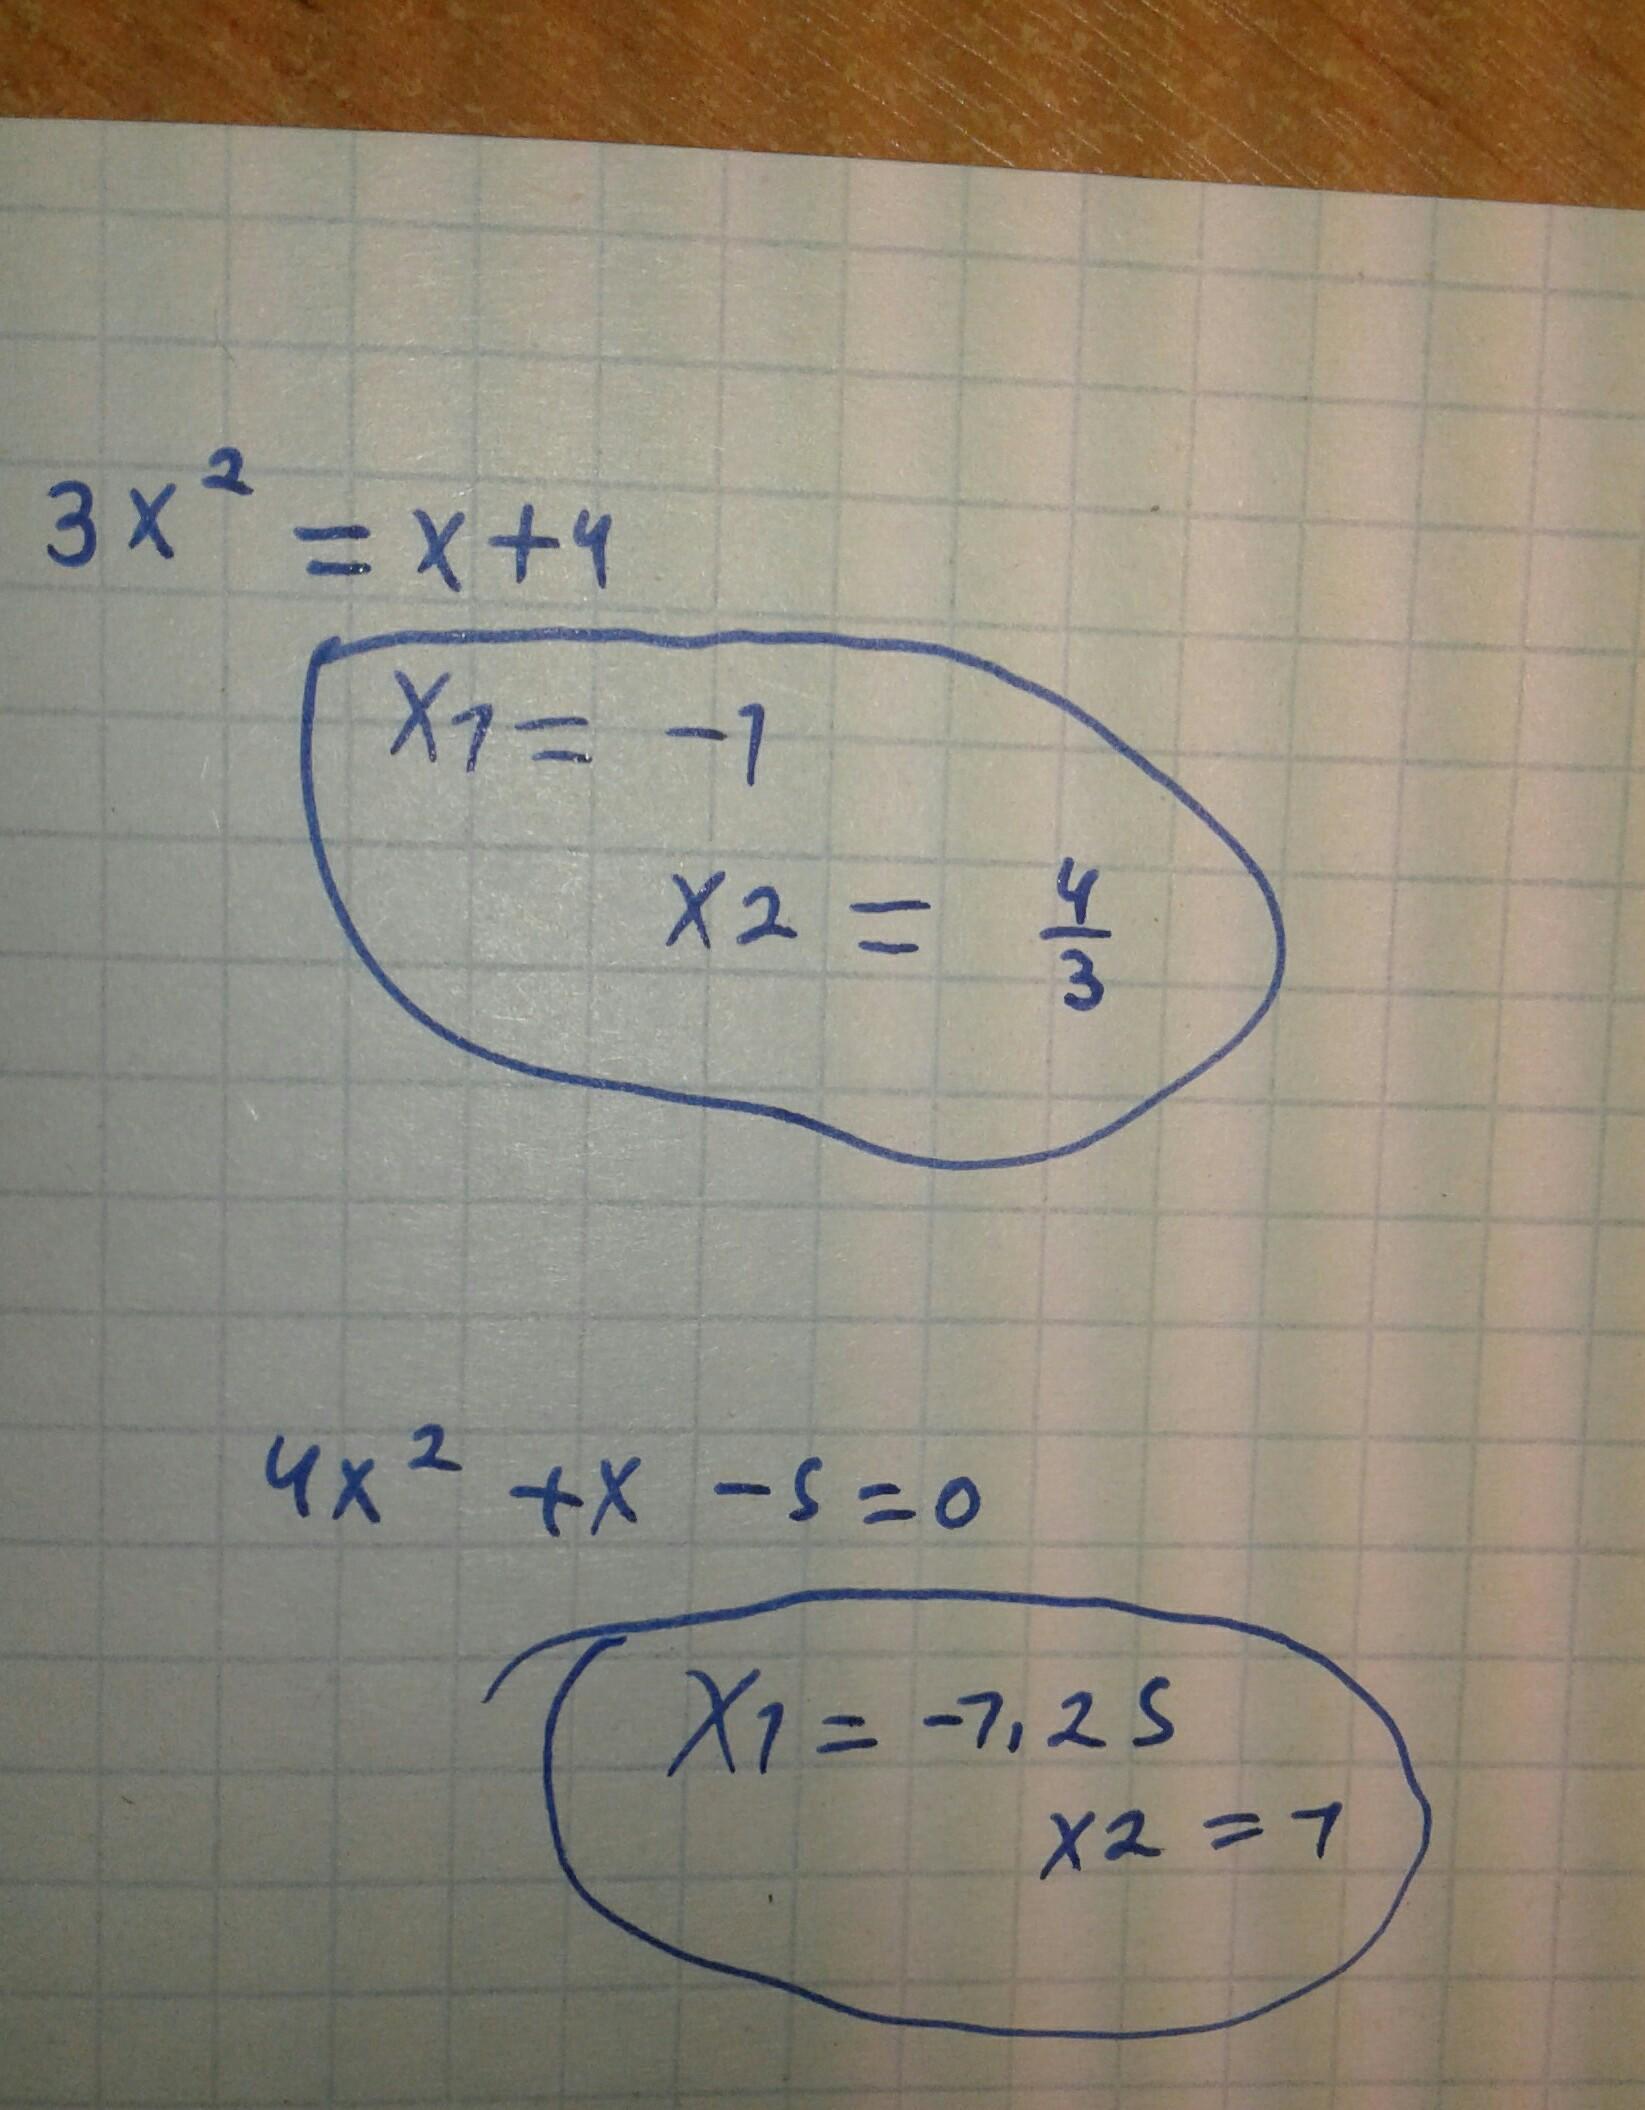 3x² = x+4
x1 = -1
x2 = 4/3
4x² +x -5=0
x1 = -1,25
x2 = 1